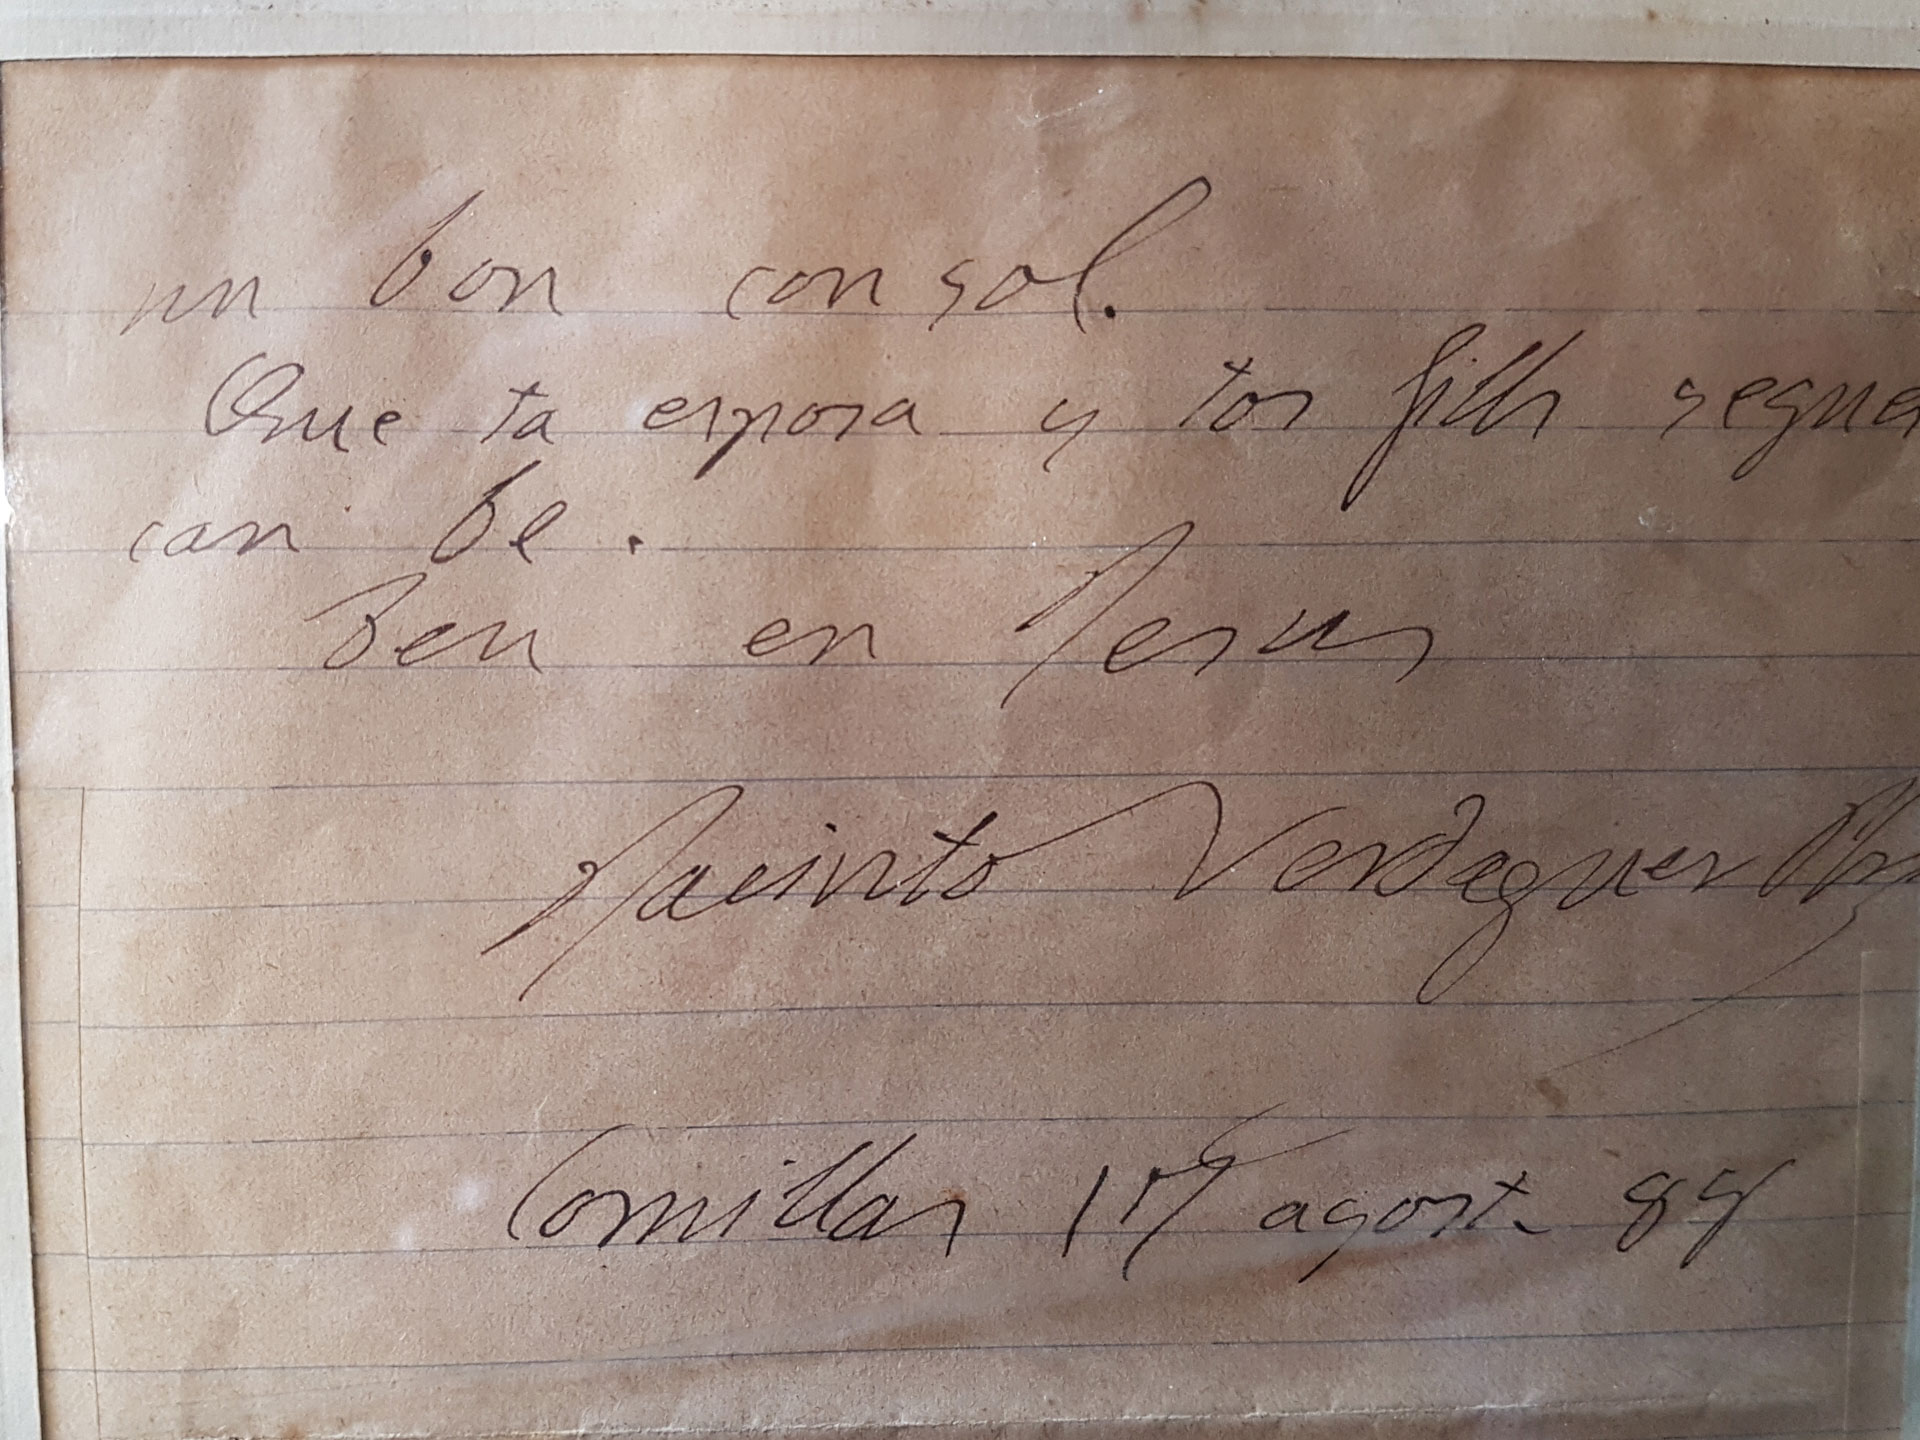 un bon consol.
Que ta esposa y tos fills segues
can be.
Teu en Jesus
Jacinto Verdaguer Pbre
Comillas 17 agost. 88